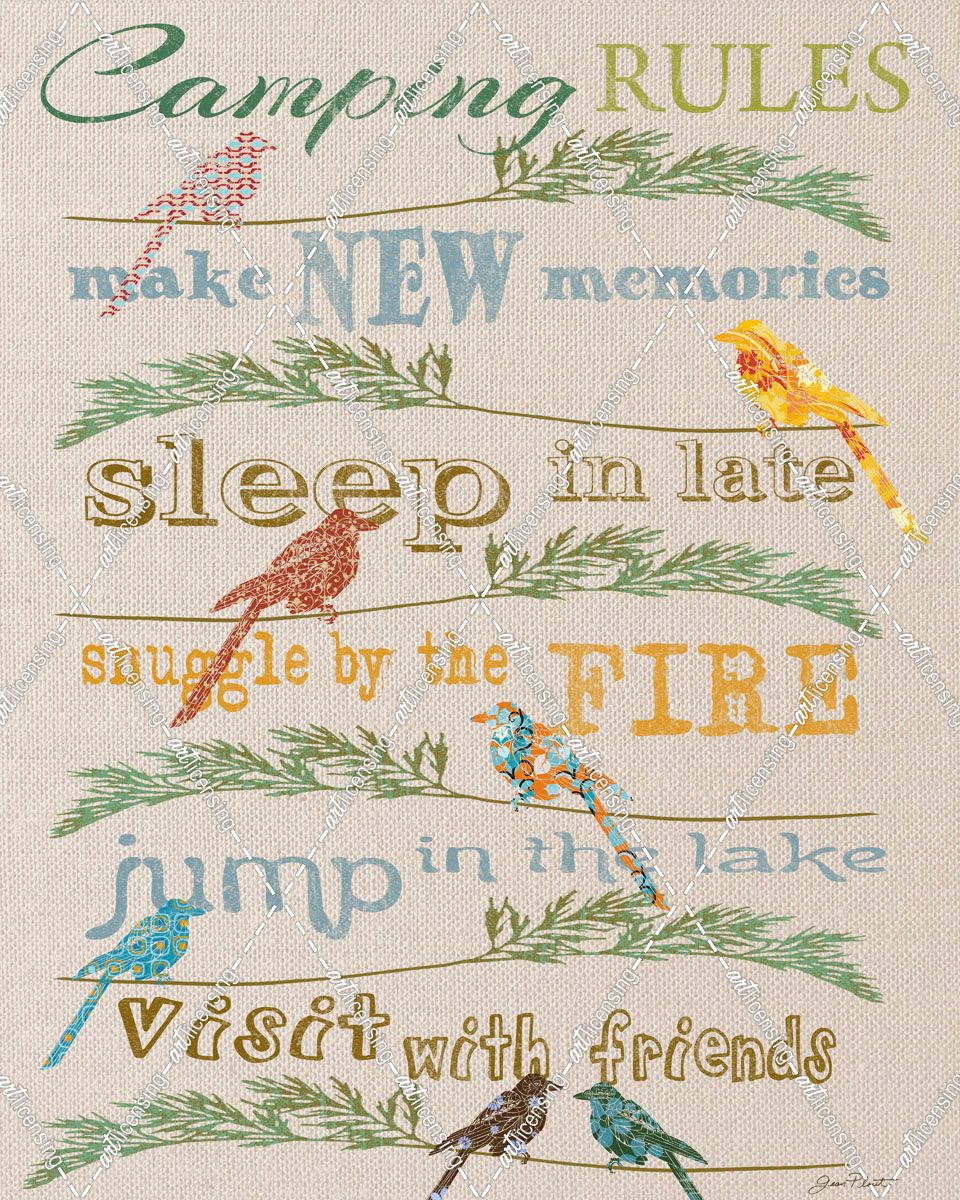 Camping RULES
make NEW memories
sleep in late
snuggle by the FIRE
jump in the lake
visit with friends
Jean Plout
art licensing